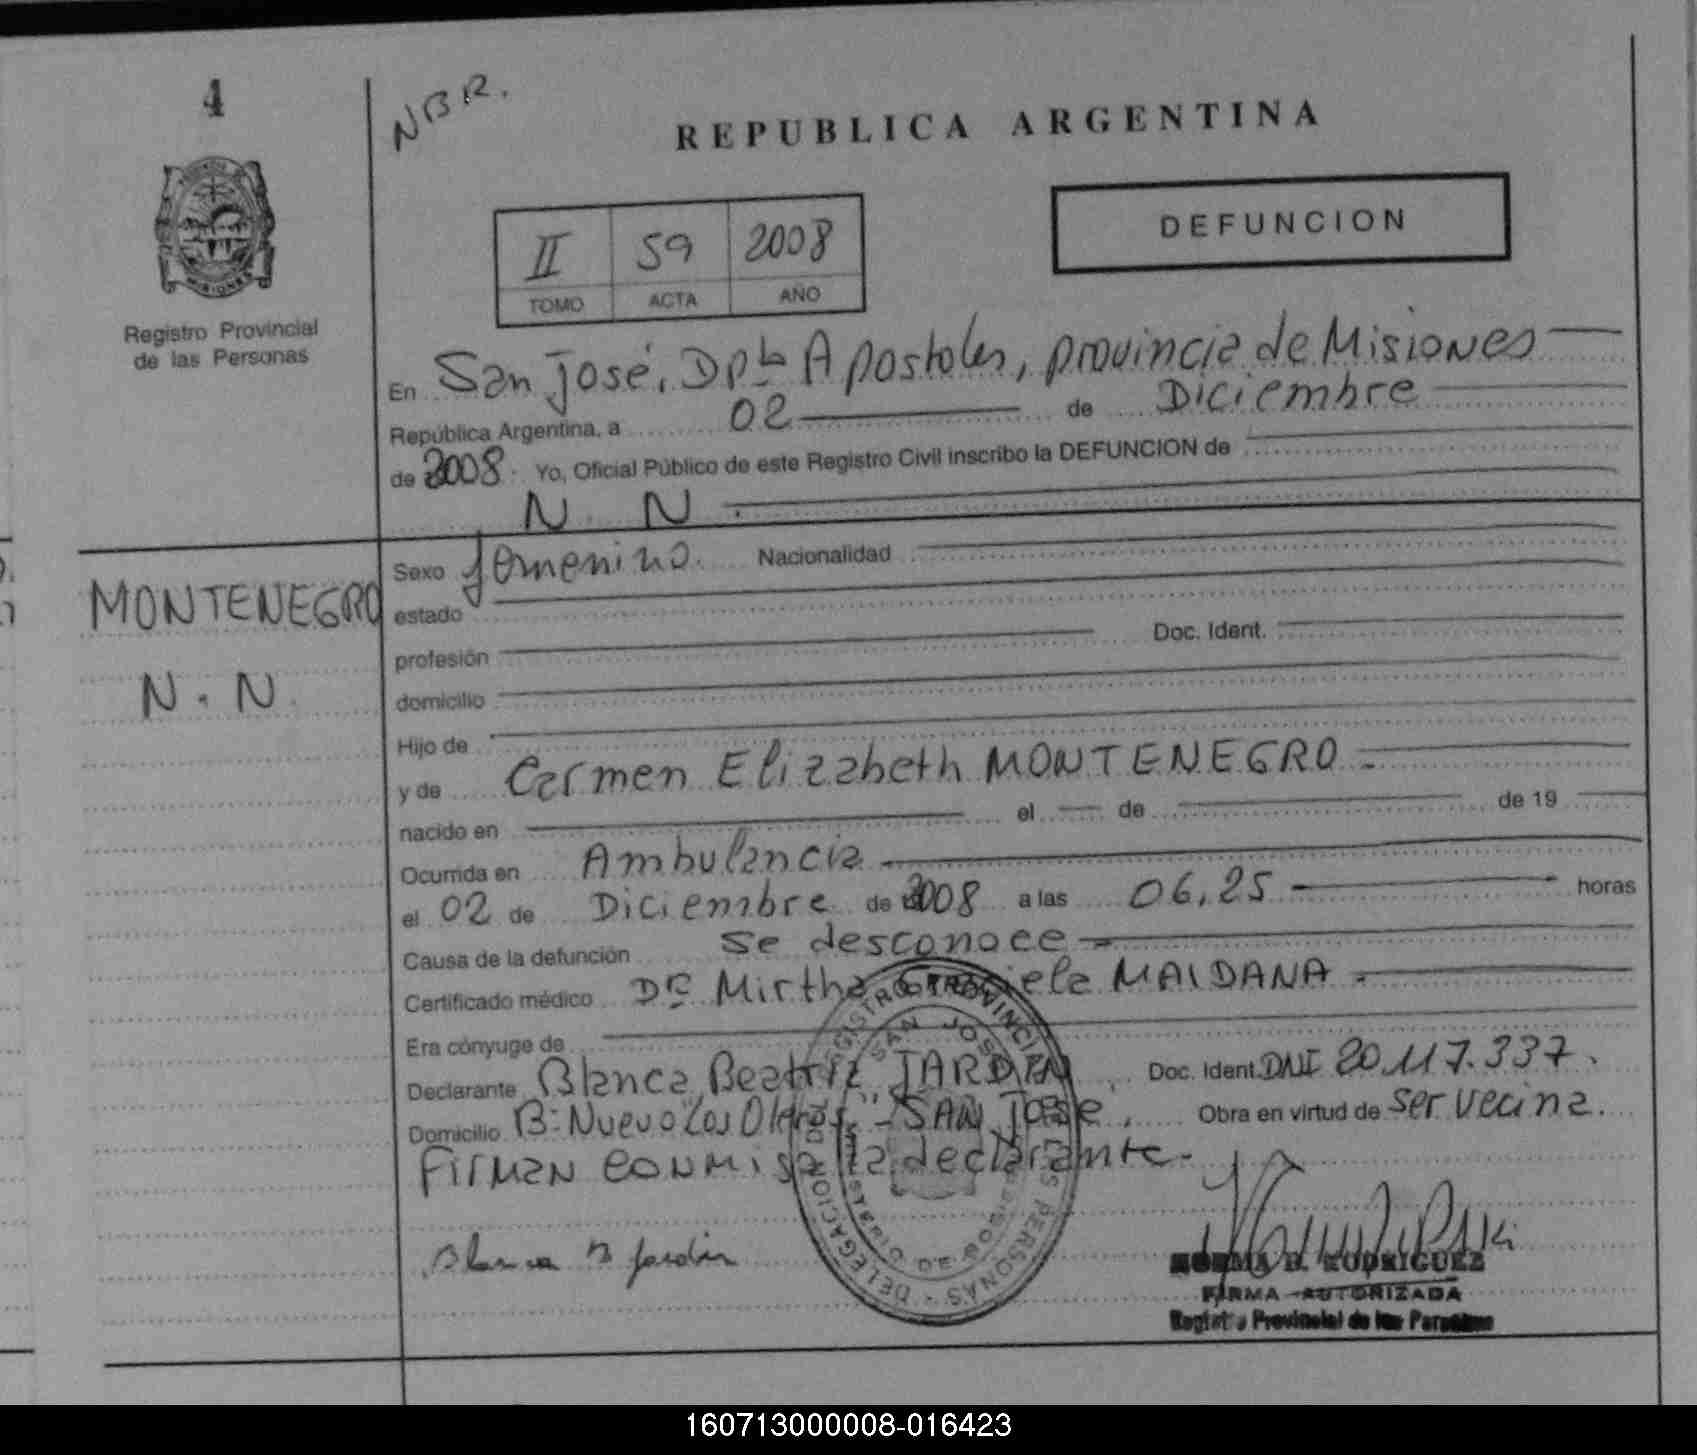 4
NBR.
REPUBLICA ARGENTINA
MISIONES
Registro Provincial
de las Personas
II 59 2008
TOMO ACTA AÑO
DEFUNCION
En San José, Dpto Apostoles, provincia de Misiones
República Argentina, a 02 de Diciembre
de 2008. Yo, Oficial Público de este Registro Civil inscribo la DEFUNCION de
N N.
MONTENEGRO
N. N.
Sexo femenino. Nacionalidad
estado
profesión Doc. Ident.
domicilio
Hijo de
y de Carmen Elizabeth MONTENEGRO.
nacido en el de de 19
Ocurrida en Ambulancia
el 02 de Diciembre de 2008 a las 06,25 horas
Causa de la defunción se desconoce
Certificado médico Dra Mirtha Graciela MAIDANA.
Era cónyuge de
Declarante Blanca Beatriz JARDIN, Doc. Ident. DNI 20.117.337.
Domicilio B: Nuevo "Los Oleros" - SAN JOSE, Obra en virtud de ser vecina.
Firman conmigo la declarante.
Blanca B Jardin
REGISTRO PROVINCIAL DE LAS PERSONAS - DELEGACION
SAN JOSE
NORMA B. RODRIGUEZ
FIRMA AUTORIZADA
Registro Provincial de las Personas
160713000008-016423